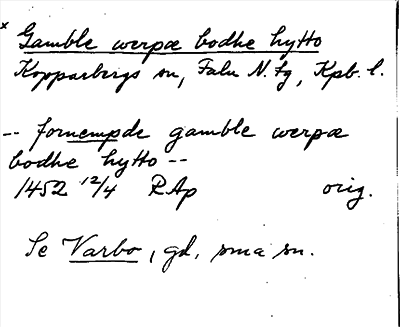 x Gamble werpæ bodhe hytto
Kopparbergs sn, Falu N. tg, Kpb. l.
-- fornempde gamble werpæ
bodhe hytto --
1452 12/4 RAp orig.
Se Varbo, gd, sma sn.